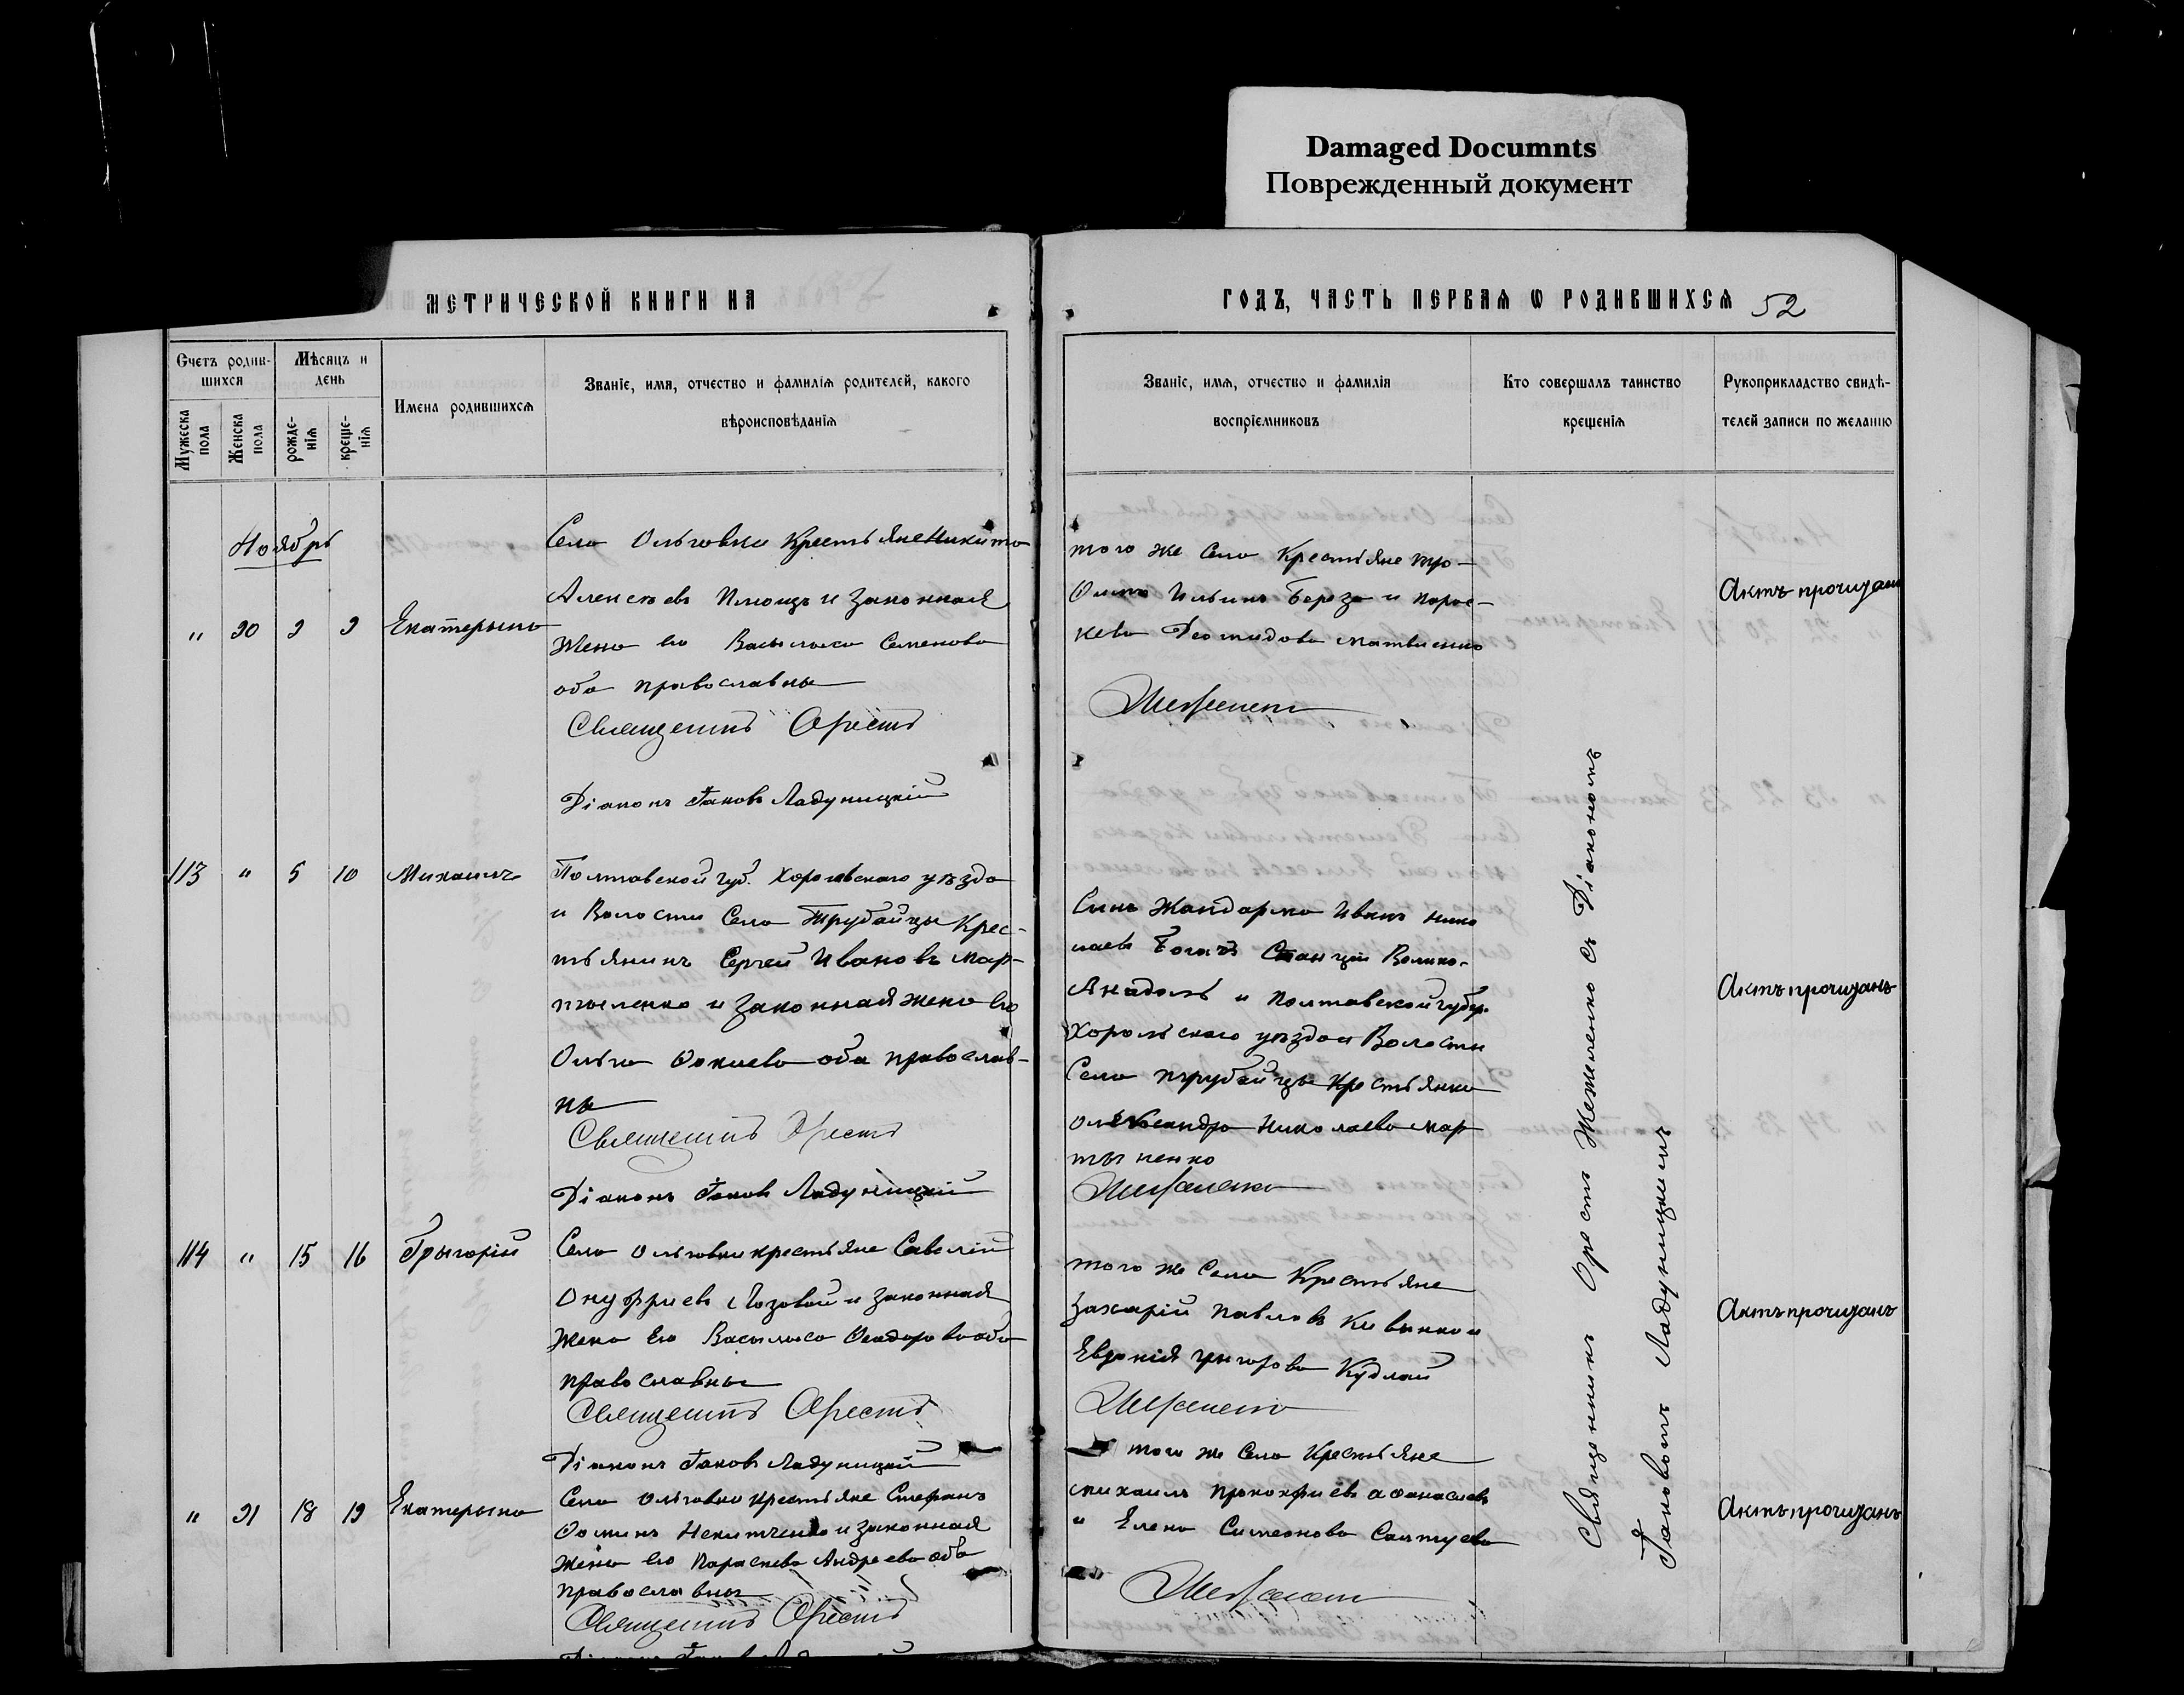 Damaged Documnts
Поврежденный документ
МЕТРИЧЕСКОЙ КНИГИ НА
ГОДЪ, ЧАСТЬ ПЕРВАЯ Ѡ РОДИВШИХСЯ 52
Счетъ родив-
шихся
Мѣсяцъ и
день
Мужеска
пола
Женска
пола
рожде-
нія
креще-
нія
Имена родившихся
Званіе, имя, отчество и фамилія родителей, какого
вѣроисповѣданія
Званіе, имя, отчество и фамилія
воспріемниковъ
Кто совершалъ таинство
крещенія
Рукоприкладство свидѣ-
телей записи по желанію
Ноябрь
" 90 9 9 Екатерына
Села Ольговки Крестьяне Никита
Алексѣевъ и законная
жена его Васылыса Семенова
оба православны
Священникъ Орестъ
Діаконъ Іаковъ Ладуницкій
того же Села Крестьяне
Ильинъ Береза и Парас-
кева Матвіенко
Межеленко
Актъ прочиданъ
113 " 5 10 Михаилъ
Полтавской губ. Хорольскаго уѣзда
и Волости Села Трубайцы Крес-
тьянинъ Сергей Ивановъ Мар-
тыненко и законная жена его
Ольга Фокиева оба православ-
ны
Священникъ Орестъ
Діаконъ Іаковъ Ладуницкій
Сынъ Жандарма Иванъ Нико
лаевъ Богачъ Станціи Велико-
Анадоль и Полтавской губер.
Хорольскаго уѣзда и Волости
Села Трубайцы Крестьянка
Олександра Николаева Мар
тыненко
Межеленко
Актъ прочиданъ
114 " 15 16 Грыгорій
Села Ольговки крестьяне Савелій
Онуфриевъ Лозовой и законная
жена его Васылыса Феодорова оба
православны
Священникъ Орестъ
Діаконъ Іаковъ Ладуницкій
того же Села Крестьяне
Захарій Павловъ и
Евдокія Грыгорова Кудлай
Межеленко
Актъ прочиданъ
" 91 18 19 Екатерына
Села Ольговки крестьяне Стефанъ
Фоминъ Никитченко и законная
жена его Параскева Андреева оба
православны
Священникъ Орестъ
Діаконъ Іаковъ
того же Села Крестьяне
Михаилъ Афанасьевъ
и Елена Симеонова
Межеленко
Актъ прочиданъ
Священникъ Орестъ Межеленко съ Діакономъ
Іаковомъ Ладуницкимъ